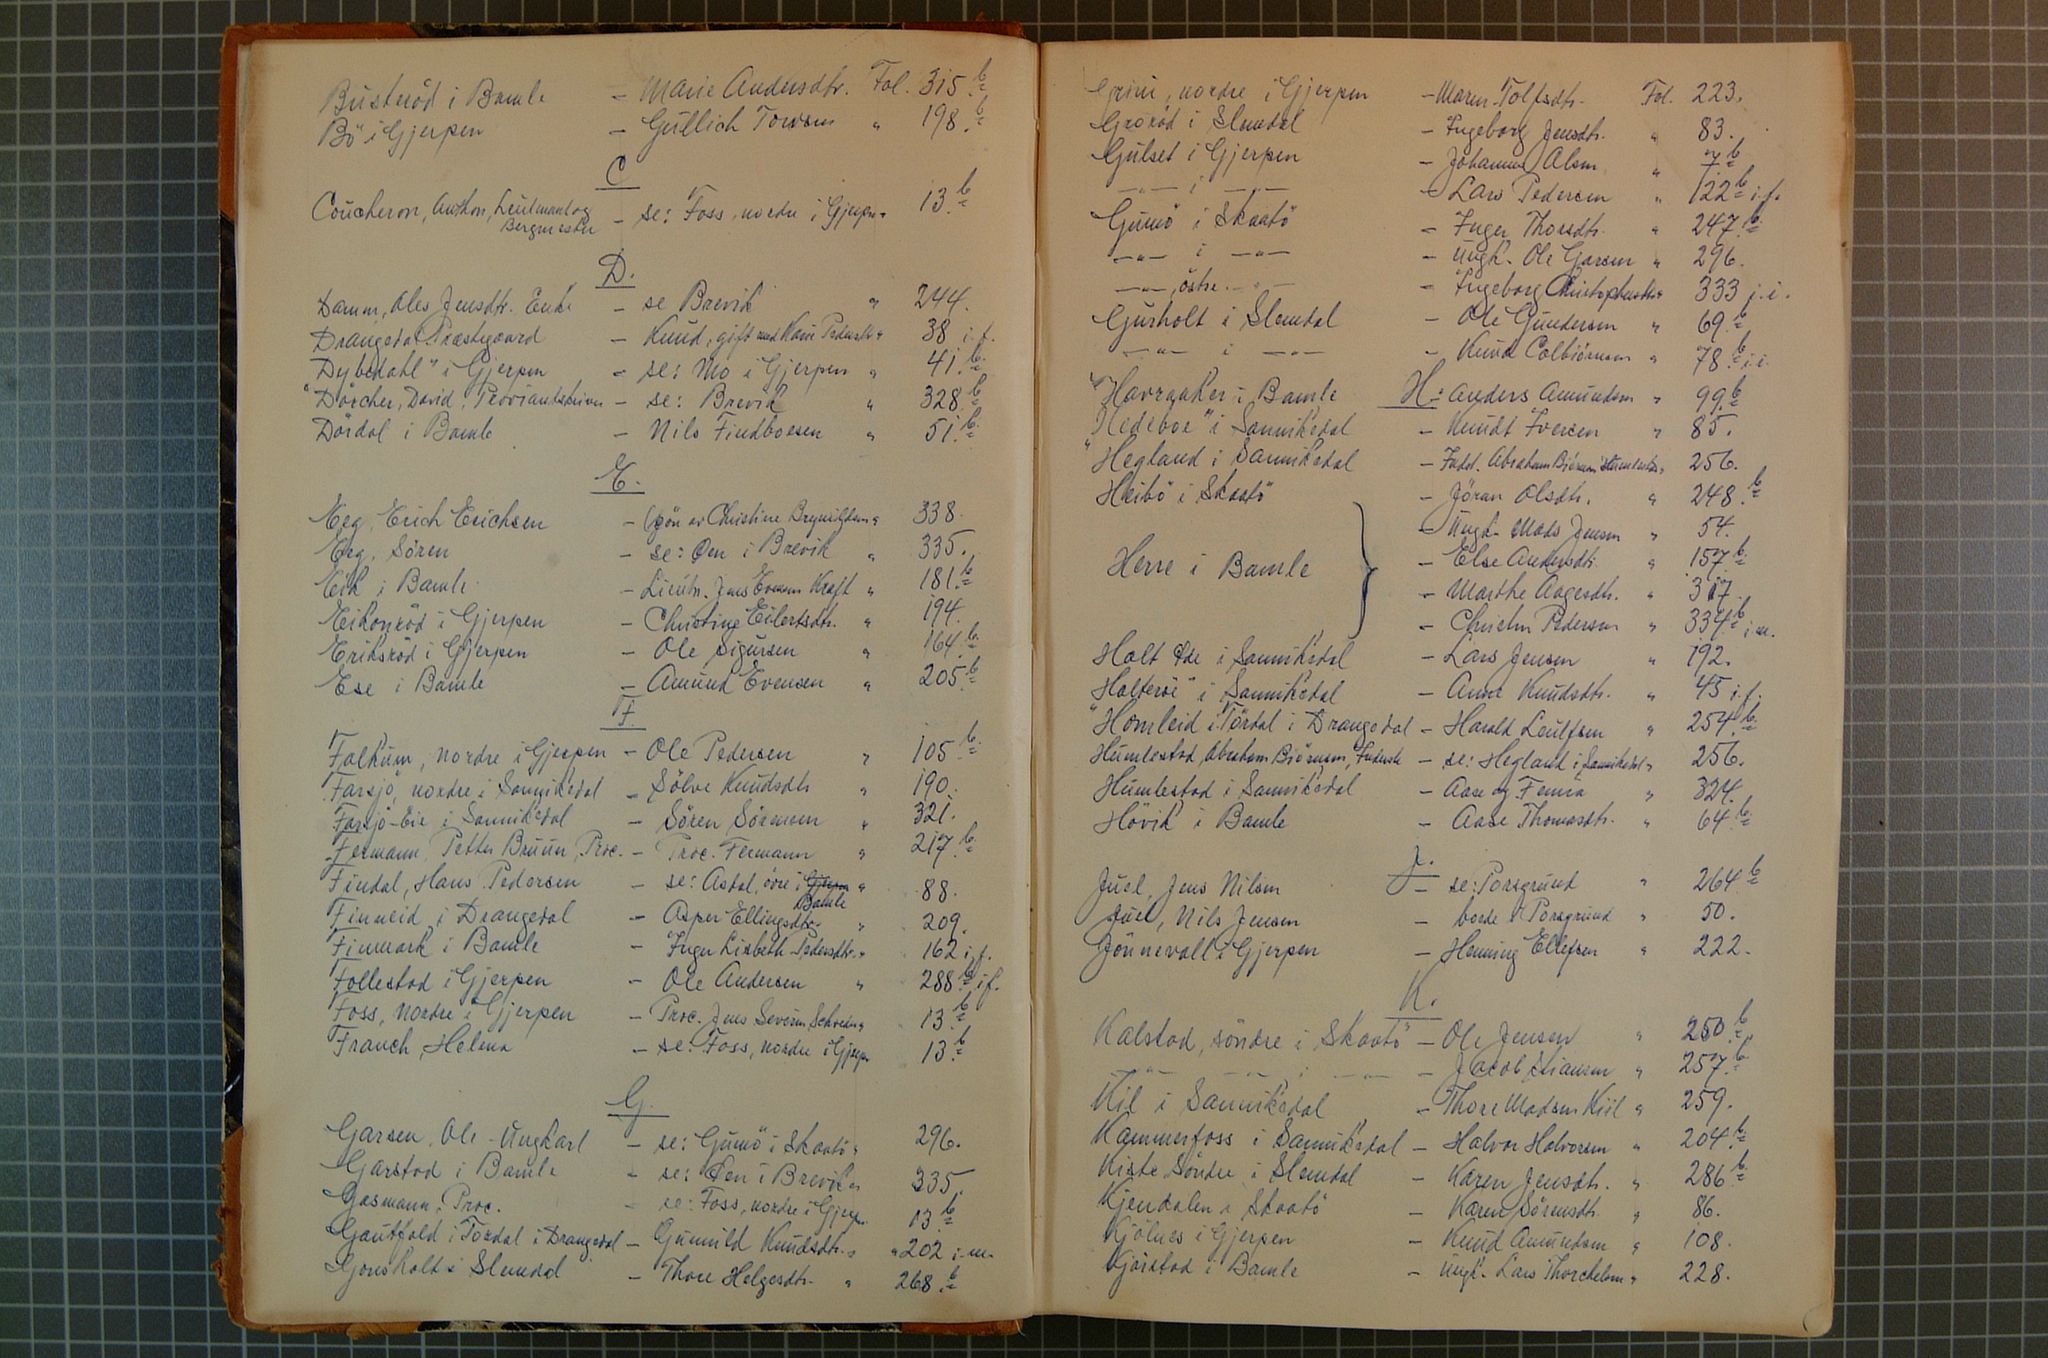 Busteröd i Bamle - Marie Andersdtr. Fol. 315.b
Bö i Gjerpen - Gullich Torssen " 198.b
C
Coucheron, Anthon, Leutnant og - se: Foss, nordre i Gjerpen " 13.b
Bergmester
D.
Damm, Ales Jensdtr. Enke - se Brevik " 244.
Drangedal Præstegaard - Knud, gift med Karie Pedersdtr " 38 i.f.
"Dybedahl" i Gjerpen - se: Mo i Gjerpen " 41.b
Dörcher, David, Proviantskriver - se: Brevik " 328.b
Dördal i Bamle - Nils Findboesen " 51.b
E.
Eeg, Erich Erichsen - (sön av Christine Brynildsen " 338.
Eeg, Sören - se: Öen i Brevik " 335.
Eik i Bamle - Lieutn. Jens Evensen Kraft " 181.b
Eikonröd i Gjerpen - Christine Eilertsdtr. " 194.
Eriksröd i Gjerpen - Ole Sigursen " 164.b
Ese i Bamle - Amund Evensen " 205.b
F.
Falkum, nordre i Gjerpen - Ole Pedersen " 105.b
Farsjö, nordre i Sannikedal - Sölve Knudsdtr " 190.
Farsjö-Eie i Sannikedal - Sören Sörensen " 321.
Fermann, Petter Bruun, Proc. - Proc. Fermann " 217.b
Findal, Hans Pedersen - se: Asdal, övre i Gjerpen " 88.
Bamle
Finneid i Drangedal - Asper Ellingsdtr. " 209.
Finmark i Bamle - Inger Lisbeth Pedersdtr. " 162 i.f.
Follestad i Gjerpen - Ole Andersen " 288.b i f.
Foss, nordre i Gjerpen - Proc. Jens Severin Schreder " 13.b
Franch, Helena - se: Foss, nordre i Gjerpen 13.b
G.
Garsen, Ole - Ungkarl - se: Gumö i Skaatö " 296.
Garstad i Bamle - se: Öen i Brevik " 335.
Gasmann, Proc. - se: Foss, nordre i Gjerpen 13.b
Gautfald i Tördal i Drangedal - Gunnild Knudsdtr. " 202 i.m.
Gonsholt i Slemdal - Thore Helgesdtr. " 268.b
Grini, nordre i Gjerpen - Maren Tolfsdtr. Fol. 223.
Groröd i Slemdal - Ingeborg Jensdtr. " 83.
Gulset i Gjerpen - Johannes Alsen " 7.b
-"- i -"- - Lars Pedersen " 122.b i.f.
Gumö i Skaatö - Inger Thorsdtr. " 247.b
-"- i -"- - Ungk. Ole Garsen " 296.
-"-, östre -"- - Ingeborg Christophersdtr " 333 j.i.
Gurholt i Slemdal - Ole Gundersen " 69.b
-"- i -"- - Knud Colbiörnsen " 78.b i.i.
H.
"Havraaker i Bamle - Anders Amundsen " 99.b
"Hedeboe" i Sannikedal - Knudt Iversen " 85.
"Hegland i Sannikedal - Fadd. Abraham Biörnsen Humlestad " 256.
Heibö i Skaatö - Jöran Olsdtr. " 248.b
- Ungk. Mads Jensen " 54.
Herre i Bamle - Else Andersdtr. " 157.b
- Marthe Aagesdtr. " 317.
- Christen Pedersen " 334.b i m.
Holt Øde i Sannikedal - Lars Jensen " 192.
Holteröe" i Sannikedal - Anne Knudsdtr. " 45 i.f.
"Homleid i Tördal i Drangedal - Harald Leulfsen " 254.b
Humlestad, Abraham Biörnsen, - se: Hegland i Sannikedal " 256.
Humlestad i Sannikedal - Aase og Femia " 324.
Hövik i Bamle - Aase Thomasdtr. " 64.b
J.
Juel, Jens Nilsen - se: Porsgrund " 264.b
Juel, Nils Jensen - borde i Porsgrund " 50.
Jönnevall i Gjerpen - Henning Ellefsen " 222.
K.
Kalstad, söndre i Skaatö - Ole Jensen " 250.b
-"- -"- i -"- - Jacob " 257.b
Kil i Sannikedal - Thore Madsen Kiil " 259.
Kammerfoss i Sannikedal - Halvor Halvorsen " 204.b
Kiste, Söndre i Slemdal - Karen Jensdtr. " 286.b
Kjendalen i Skaatö - Karen Sörensdtr. " 86.
Kjölnes i Gjerpen - Knud Amundsen " 108.
Kjörstad i Bamle - Ungk. Lars Thorchelsen " 228.